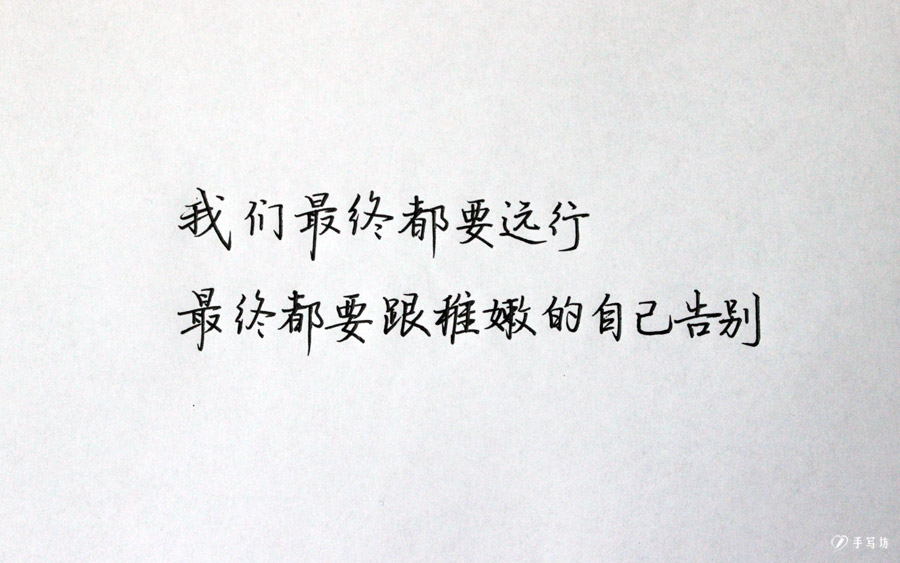 我们最终都要远行
最终都要跟稚嫩的自己告别
手写坊